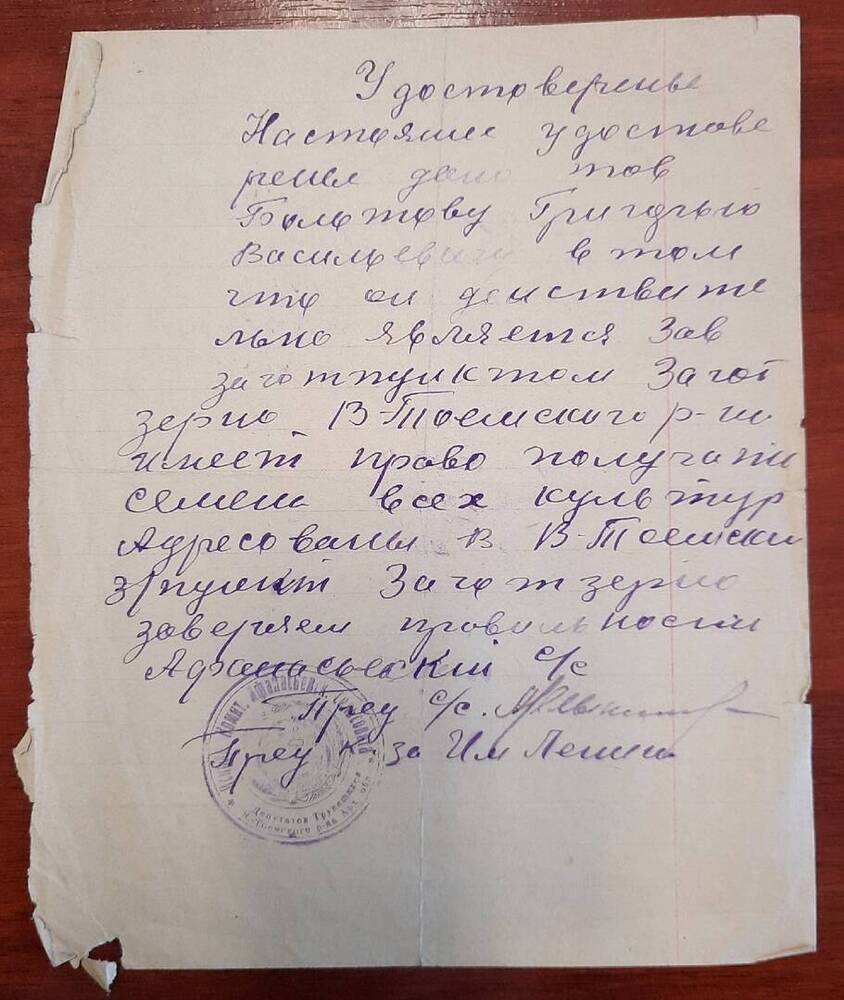 Удостоверенье
Настояшие удостове
ренея дано тов
Болотову Григорью
Васильевичу в том
что он действите
льно является Зав
заготпунктом Загот
зерно В-Тоемского р-на
имеет право получати
семена всех культур
Адресованы в В-Тоемски
пункт Заготзерно
заверяем правильности
Афанасьевский с/с
Пред с/с.
Пред к-за Им Ленина
Депутатов Трудящихся
В-Тоемского р-на Арх. обл.